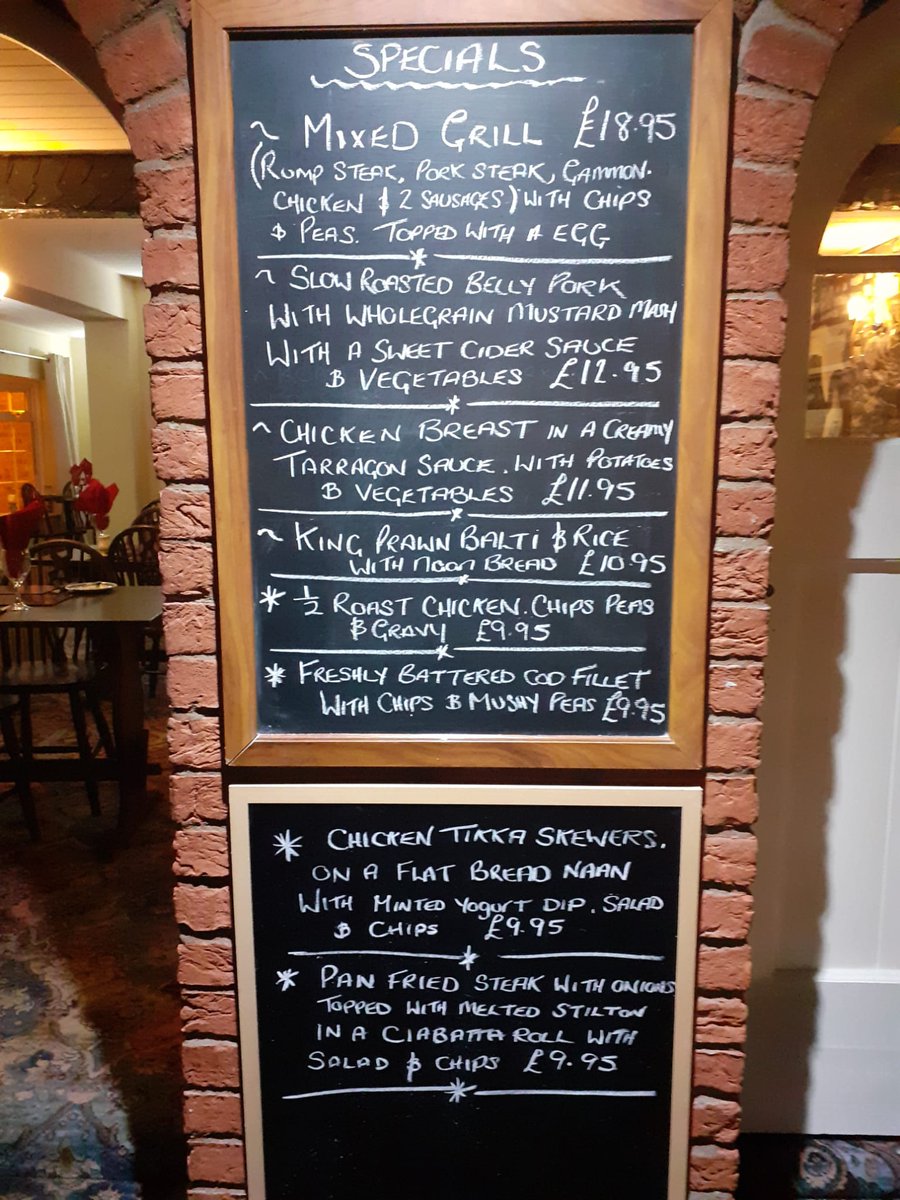 SPECIALS
~ MIXED GRILL £18.95
(RUMP STEAK, PORK STEAK, GAMMON.
CHICKEN & 2 SAUSAGES) WITH CHIPS
& PEAS. TOPPED WITH A EGG
~ SLOW ROASTED BELLY PORK
WITH WHOLEGRAIN MUSTARD MASH
WITH A SWEET CIDER SAUCE
& VEGETABLES £12.95
~ CHICKEN BREAST IN A CREAMY
TARRAGON SAUCE. WITH POTATOES
& VEGETABLES £11.95
~ KING PRAWN BALTI & RICE
WITH NOON BREAD £10.95
* ½ ROAST CHICKEN. CHIPS PEAS
& GRAVY £9.95
* FRESHLY BATTERED COD FILLET
WITH CHIPS & MUSHY PEAS £9.95
* CHICKEN TIKKA SKEWERS.
ON A FLAT BREAD NAAN
WITH MINTED YOGURT DIP. SALAD
& CHIPS £9.95
* PAN FRIED STEAK WITH ONIONS
TOPPED WITH MELTED STILTON
IN A CIABATTA ROLL WITH
SALAD & CHIPS £9.95